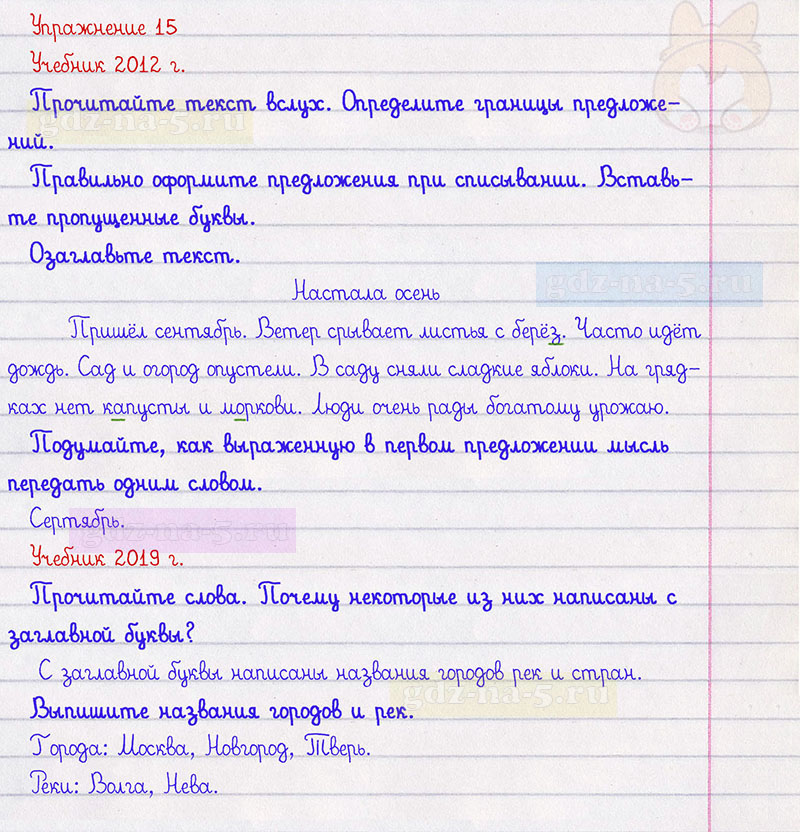 Упражнение 15
Учебник 2012 г.
Прочитайте текст вслух. Определите границы предложе-
gdz-na-5.ru
ний.
Правильно оформите предложения при списывании. Вставь-
те пропущенные буквы.
Озаглавьте текст.
gdz-na-5.ru
Настала осень
Пришёл сентябрь. Ветер срывает листья с берёз. Часто идёт
дождь. Сад и огород опустели. В саду сняли сладкие яблоки. На гряд-
ках нет капусты и моркови. Люди очень рады богатому урожаю.
Подумайте, как выраженную в первом предложении мысль
передать одним словом.
Сертябрь.
gdz-na-5.ru
Учебник 2019 г.
Прочитайте слова. Почему некоторые из них написаны с
заглавной буквы?
С заглавной буквы написаны названия городов рек и стран.
gdz-na-5.ru
Выпишите названия городов и рек.
Города: Москва, Новгород, Тверь.
Реки: Волга, Нева.